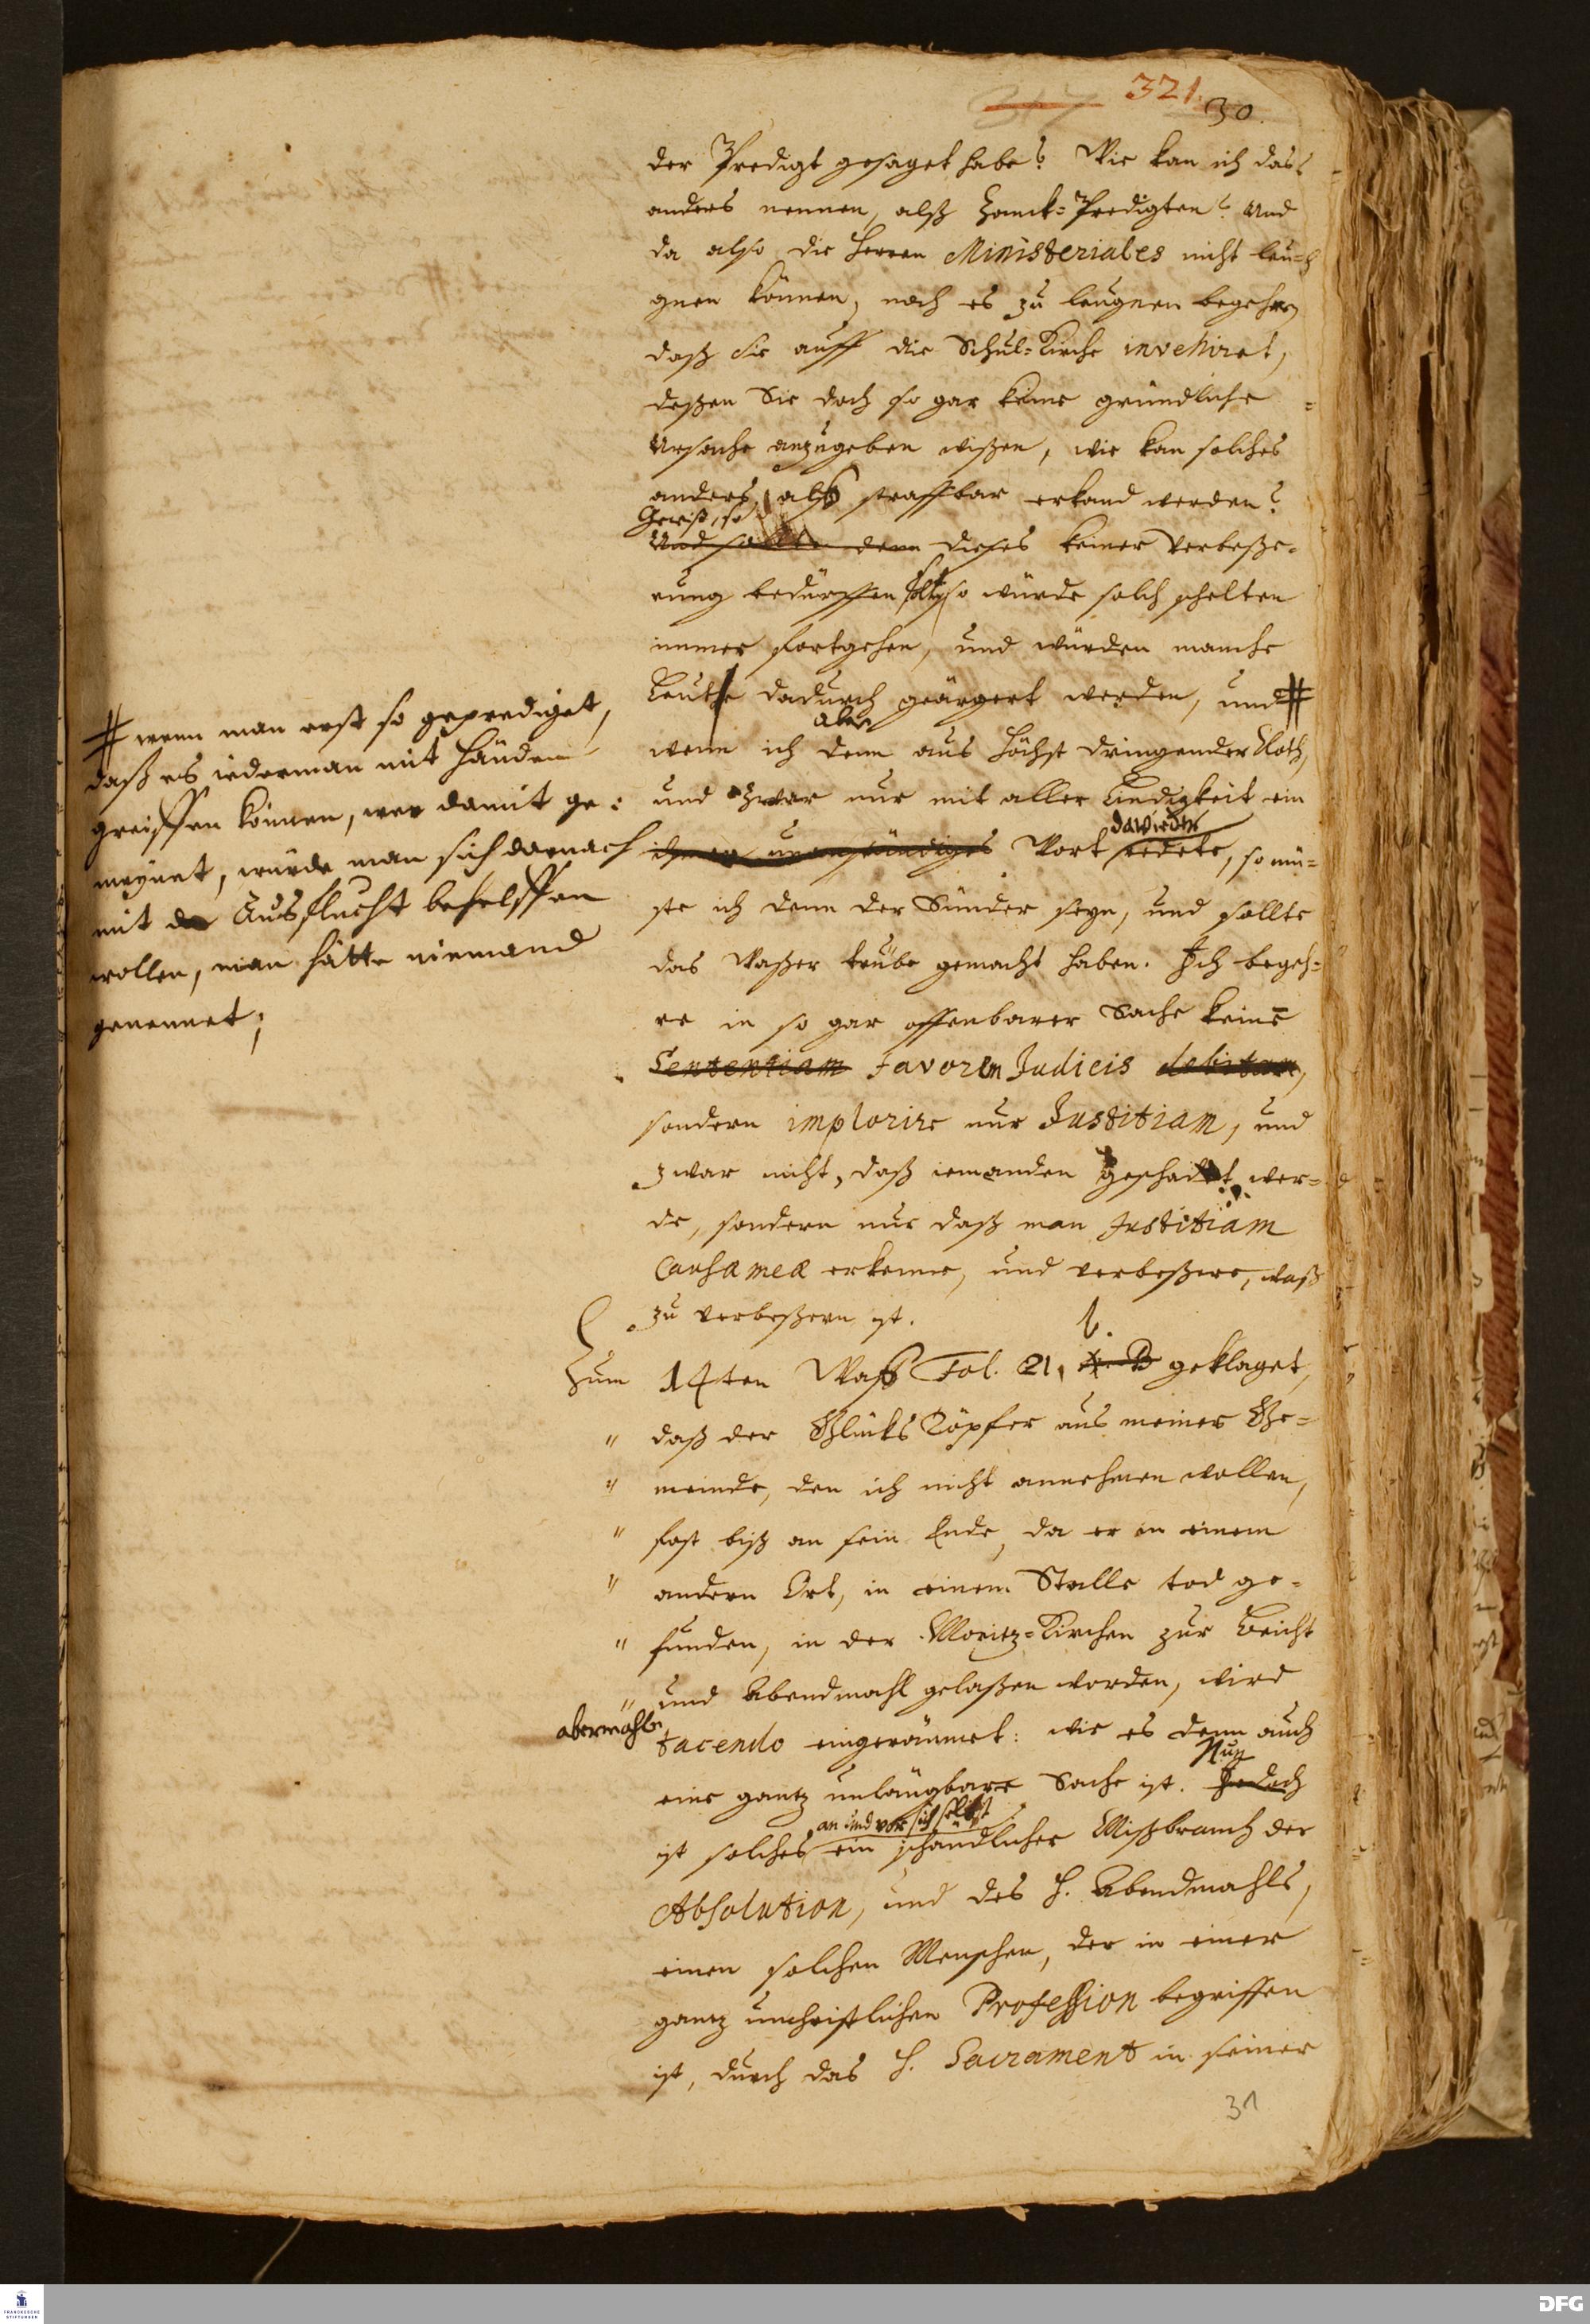 317 321. 30.
der Predigt gesaget habe? Wie kan ich das
anders nennen, alß Zanck-Predigten? Und
da also die Herren Ministeriales nicht leu-
gnen können, noch es zu leugnen begehren
daß sie auff die Schul-Kirche invehiret,
deßen Sie doch so gar keine gründliche
Ursache anzugeben wißen, wie kan solches
anders, alß straffbar erkand werden?
Gewiß, so
Und sollte denn dieses keiner Verbeße-
rung bedürffen sollte, so würde solch schelten
immer fortgehen, und würden manche
Leuthe dadurch geärgert werden, und #
aber
wenn ich denn aus höchst dringender Noth,
und zwar nur mit aller Lindigkeit ein
dawieder
Wort redete, so mü-
ste ich denn der Sünder seyn, und sollte
das Waßer trübe gemacht haben. Ich begeh-
re in so gar offenbarer Sache keine
Sententiam Favorem Judicis debitam,
sondern implorire nur Justitiam, und
zwar nicht, daß iemanden geschadet wer-
de, sondern nur daß man Justitiam
Causa mea erkenne, und verbeßere, waß
zu verbeßern ist.
# wenn man erst so geprediget,
daß es iederman mit Händen
greiffen können, wer damit ge-
meynet, würde man sich darnach
mit der Ausflucht behelffen
wollen, man hätte niemand
genennet;
b.
Zum 14ten Waß Fol. 21, geklaget,
" daß der Glücks Töpfer aus meiner Ge-
" meinde, den ich nicht annehmen wollen,
" fast biß an sein Ende, da er in einem
" andern Ort, in einem Stalle tod ge-
" funden, in der Moritz-Kirchen zur Beicht
" und Abendmahl gelaßen worden, wird
abermahls
tacendo eingeräumet: wie es denn auch
eine gantz unläugbare Sache ist. Jedoch
Nun
an und vor sich selbst
ist solches ein schändlicher Mißbrauch der
Absolution, und des H. Abendmahls,
einen solchen Menschen, der in einer
gantz unchristlichen Profession begriffen
ist, durch das H. Sacrament in seiner
31
FRANCKESCHE STIFTUNGEN
DFG